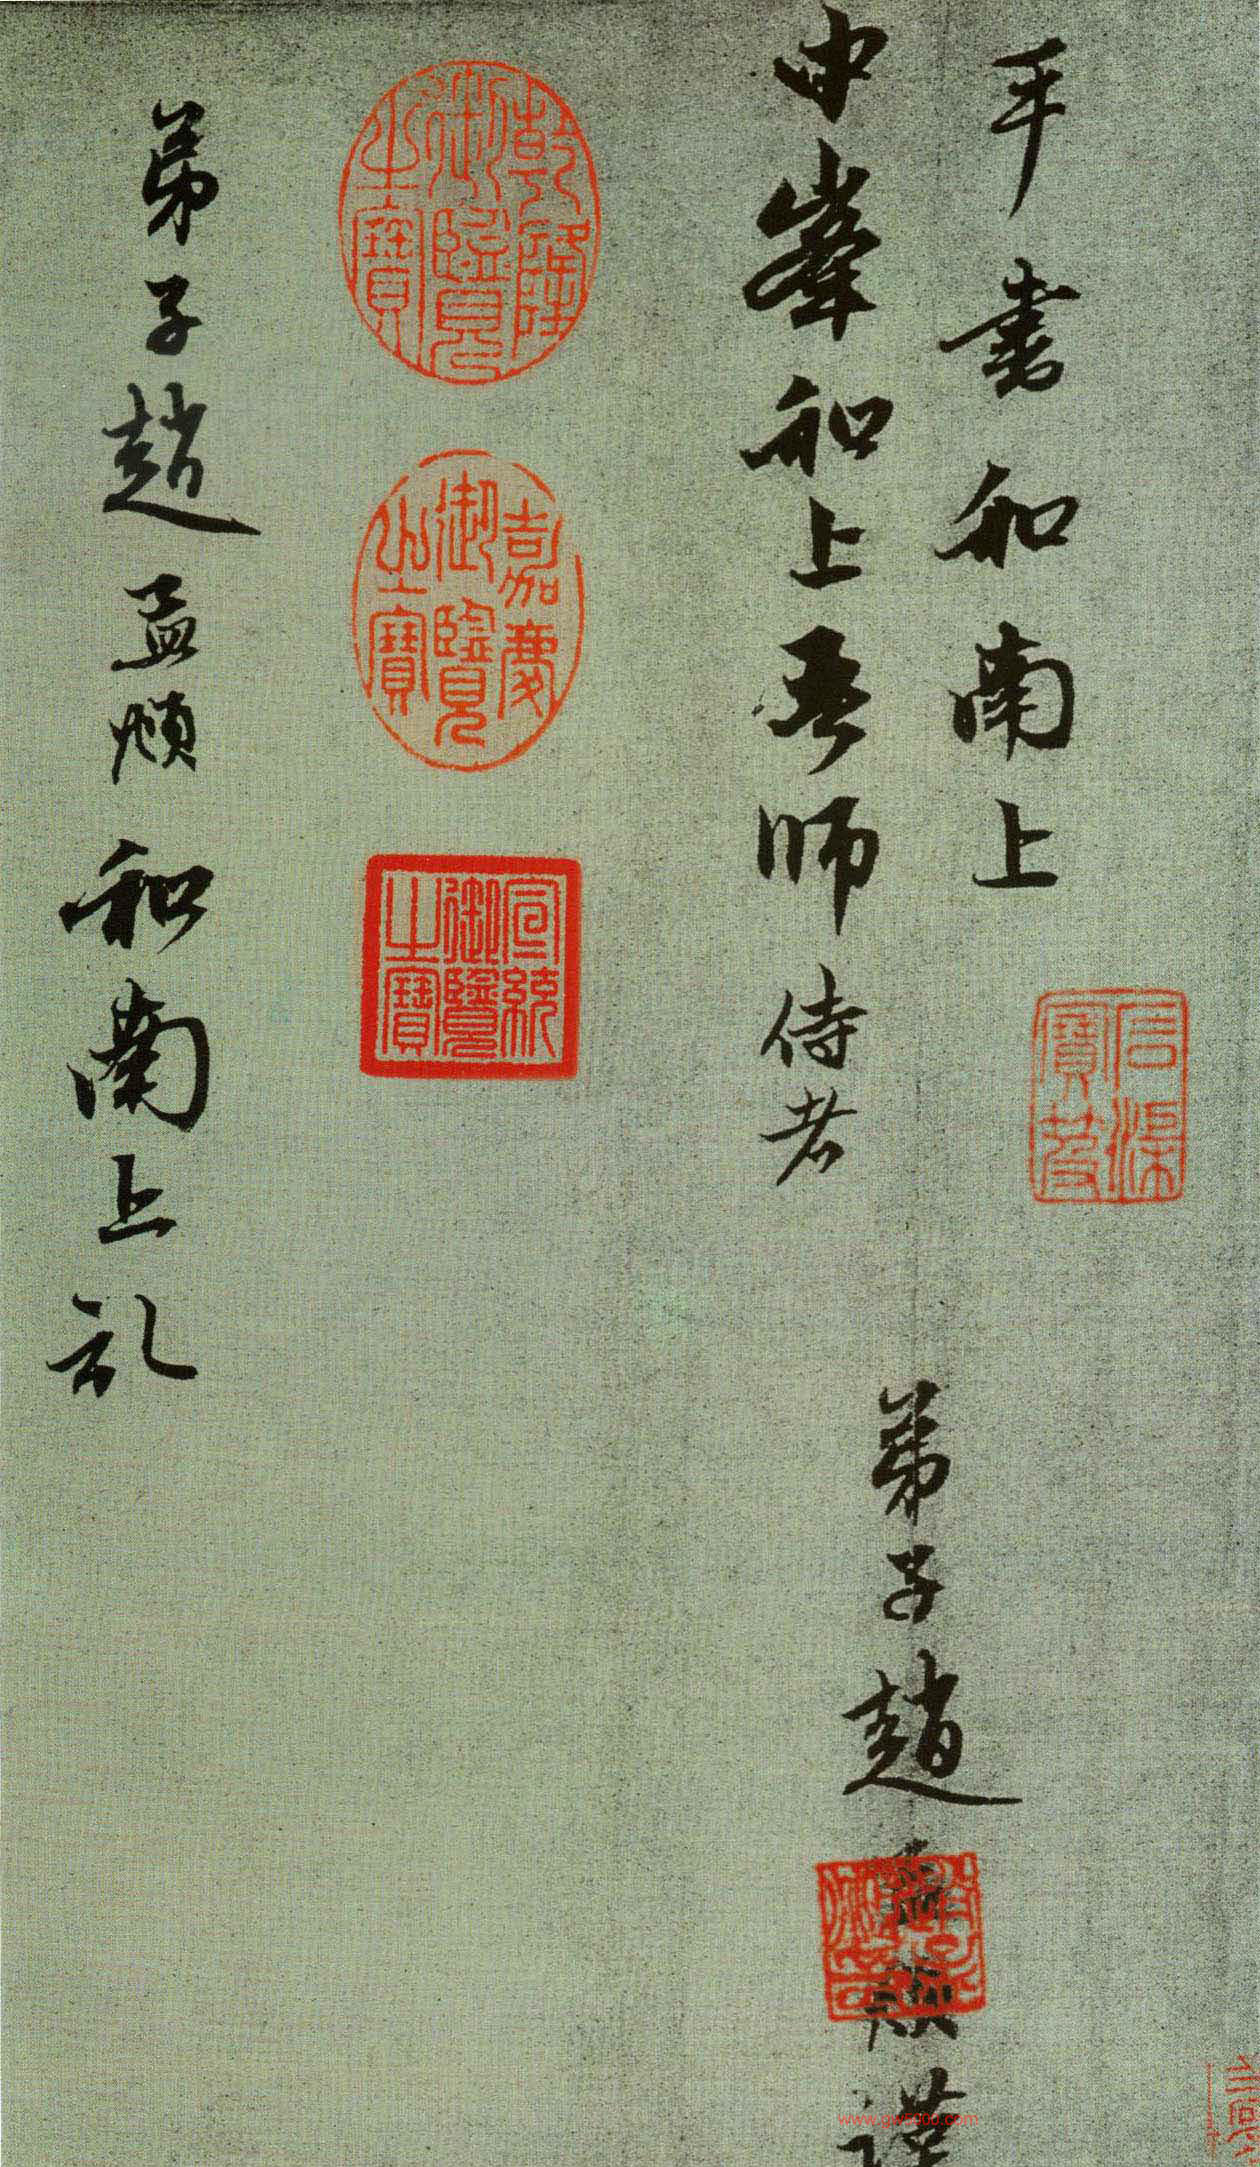 手書和南上
石渠寶笈
中峯和上吾師侍者
弟子趙孟頫謹
乾隆御覽之寶
嘉慶御覽之寶
宣統御覽之寶
弟子趙孟頫和南上